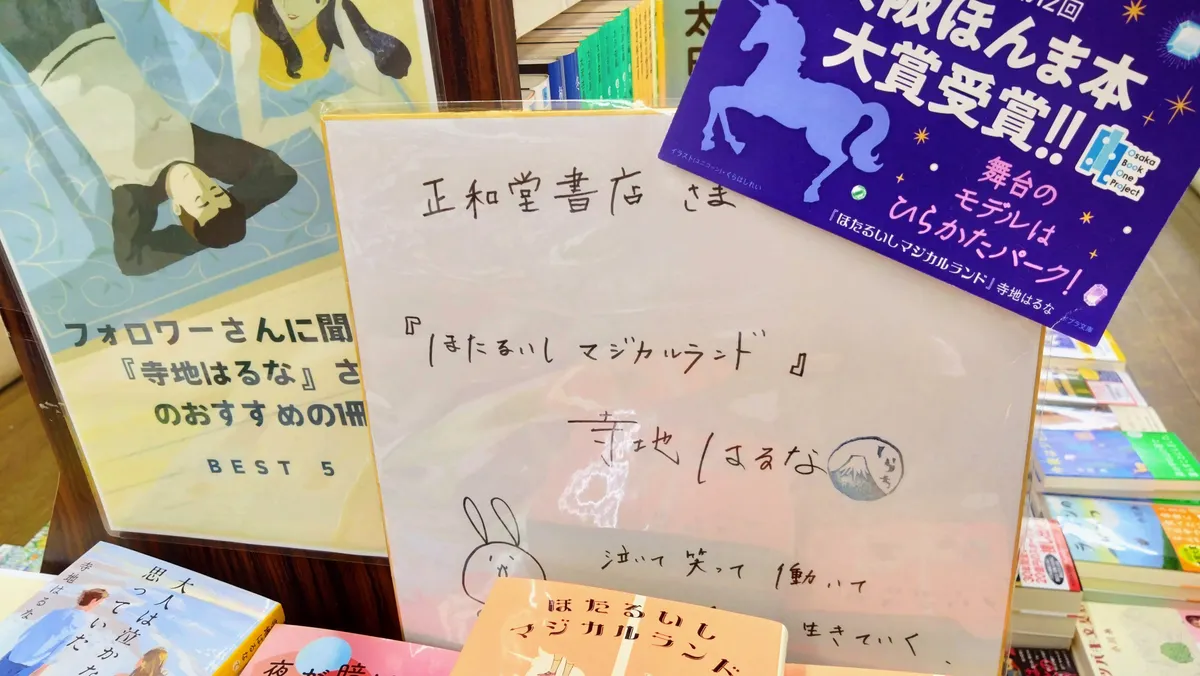 フォロワーさんに聞
『寺地はるな』さ
のおすすめの1冊
BEST 5
正和堂書店 さま
『ほたるいしマジカルランド』
寺地はるな
泣いて 笑って 働いて
生きていく、
12回
大阪ほんま本
大賞受賞!!
Osaka
Book
One
Project
舞台の
モデルは
ひらかたパーク!
『ほたるいしマジカルランド』寺地はるな
ポプラ文庫
イラスト(ユニコーン)・くらはしれい
大人は泣かな
思っていた
寺地はるな
夜が暗
ほたるいし
マジカルランド